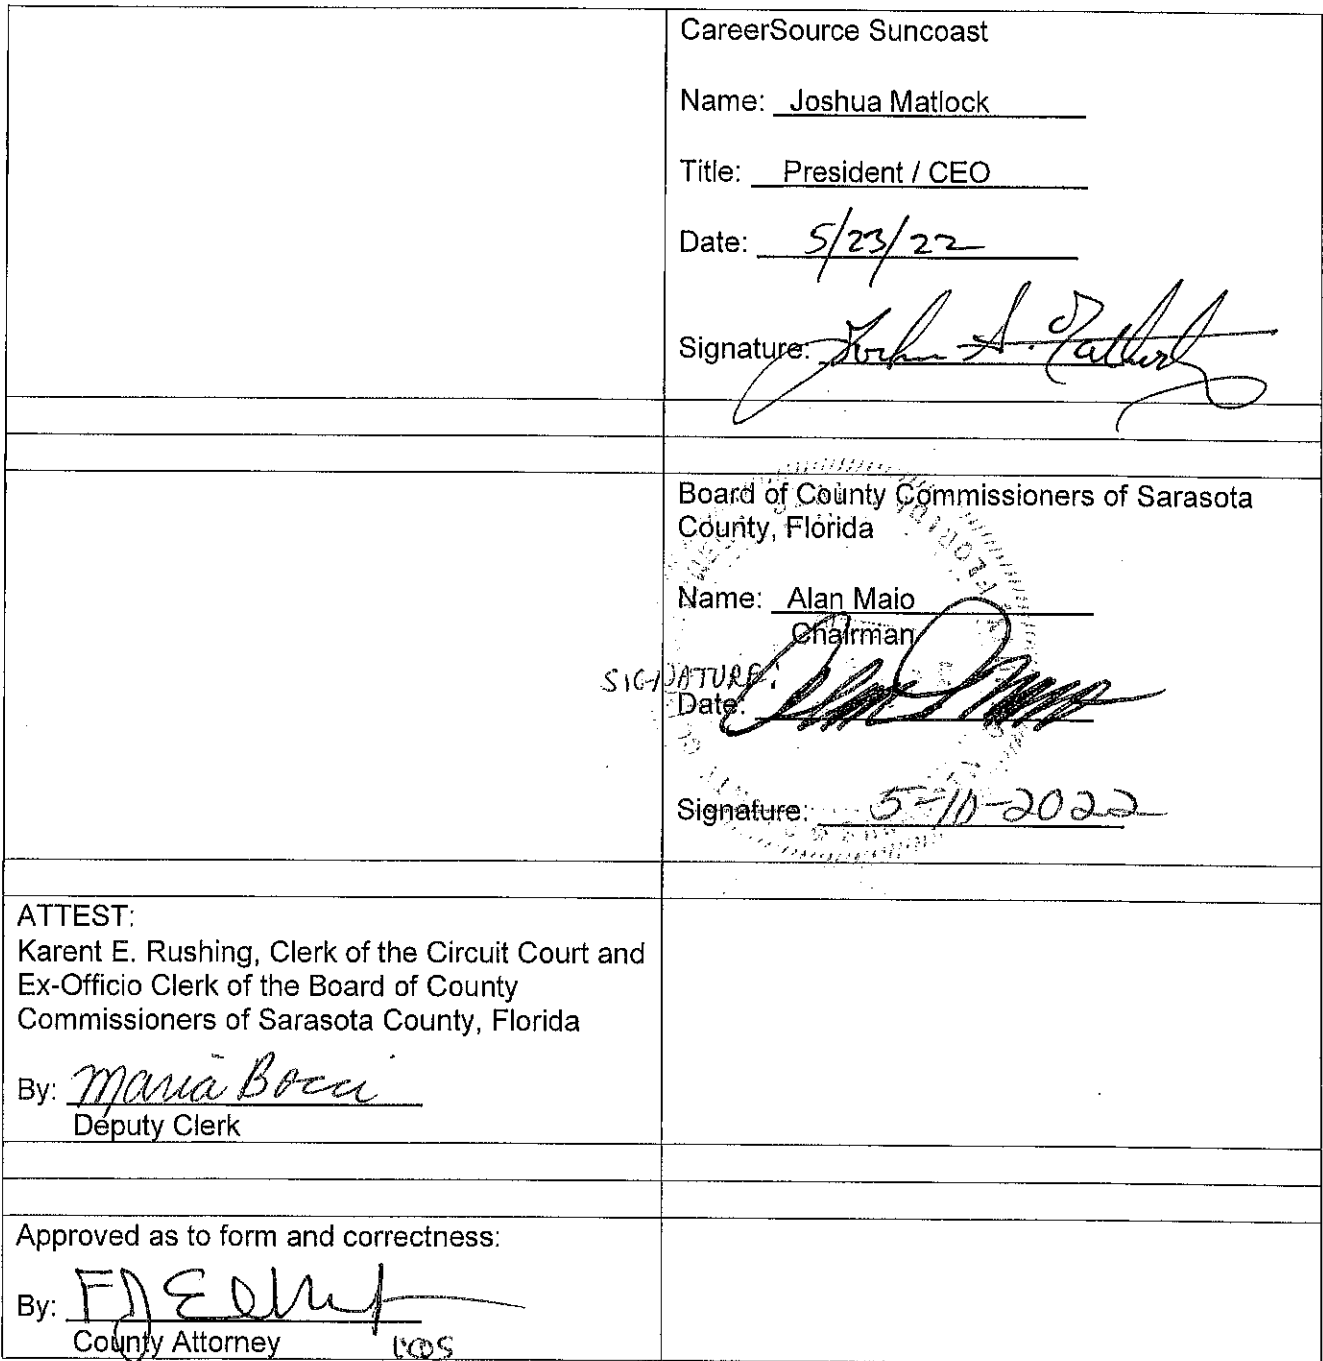 CareerSource Suncoast
Name: Joshua Matlock
Title: President / CEO
Date: 5/23/22
Signature: Joshua A. Matlock
Board of County Commissioners of Sarasota
County, Florida
Name: Alan Maio
Chairman
SIGNATURE:
Date:
Signature: 5-10-2022
ATTEST:
Karent E. Rushing, Clerk of the Circuit Court and
Ex-Officio Clerk of the Board of County
Commissioners of Sarasota County, Florida
By: Maria Bocci
Deputy Clerk
Approved as to form and correctness:
By:
County Attorney